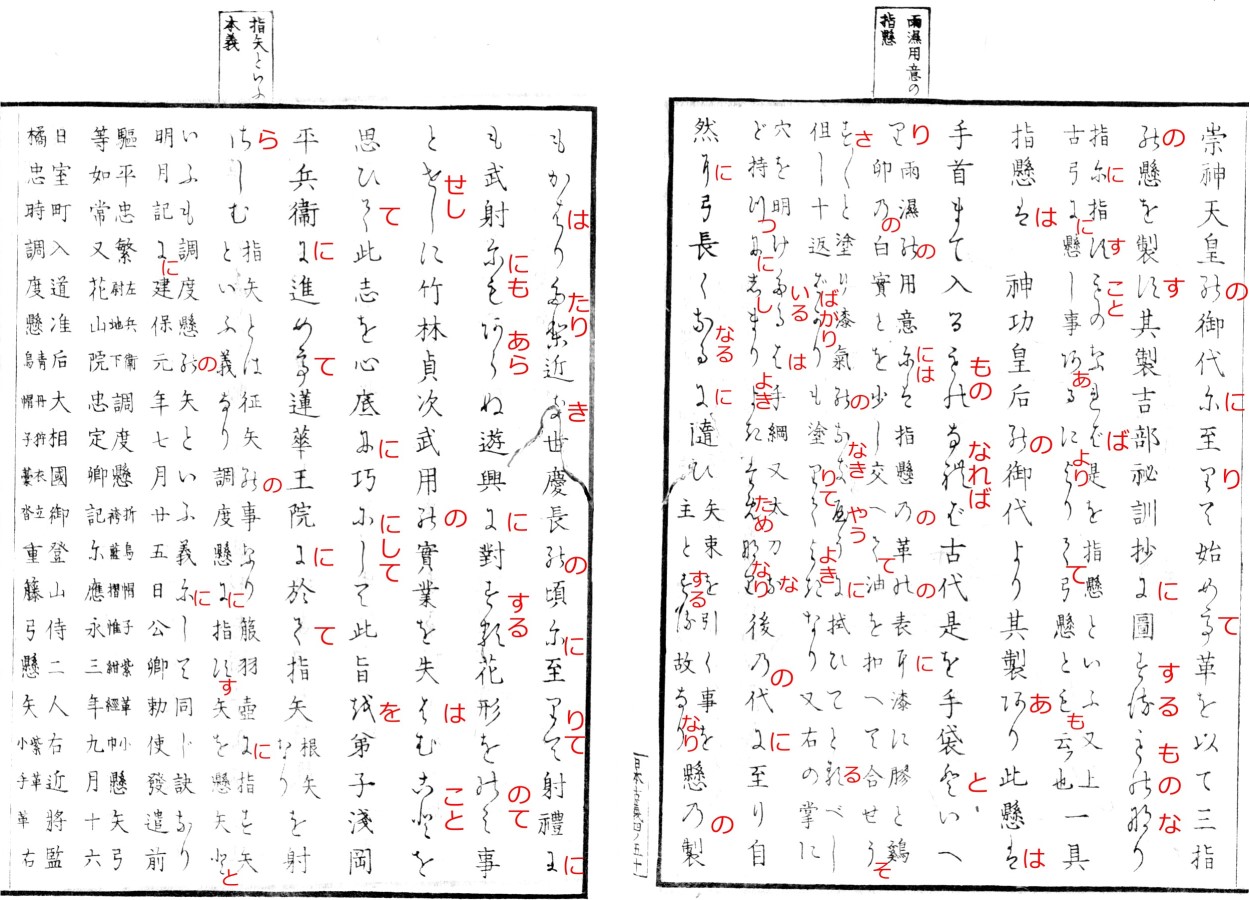 雨濡用意の
指懸
崇神天皇の御代に至りて始めて革を以て三指
の懸を製す其製吉部秘訓抄に圖するものなり
指に指すことのなれば是を指懸といふ又上一具
古弓に懸し事あるによりて弓懸とも云也
指懸は　神功皇后の御代より其製あり此懸は
手首まて入るものなれば古代是を手袋といへ
り
雨濡の用意には指懸の革の表に漆に膠と鷄
卵の白實とを少し交へて油を加へて合せうそ
さくと塗り漆氣のなきやうに拭ひてとるべし
但し十返ばかりも塗りてよきなり又右の掌に
穴を明けたるは手綱又太刀な
ど持つにしまりよきためなり
後の代に至り自
然に弓長くなるに隨ひ
矢束を引く事を
主とする故なり
懸の製
指矢といふ
本義
もかはりたり近き世慶長の頃に至りて射禮に
も武射にもあらぬ遊興に對する花形をのみて事
とせしに竹林貞次武用の實業を失はむことを
思ひて此志を心底に巧にして此旨を弟子淺岡
平兵衞に進めて蓮華王院に於て指矢
根矢
なり
を射
らしむ
指矢とは征矢の事なり箙羽壺に指を矢
といふ義なり調度懸に指す矢を懸矢と
いふも調度懸の矢といふ義にして同じ訣なり
明月記に建保元年七月廿五日公卿勅使發遣前
驅平忠繁左兵衞尉地下調度懸 懸矢弓
等如常又花山院忠定卿記に應永三年九月十六
日室町入道准后大相國御登山侍二人右近將監
橘忠時調度懸 重籐弓懸矢